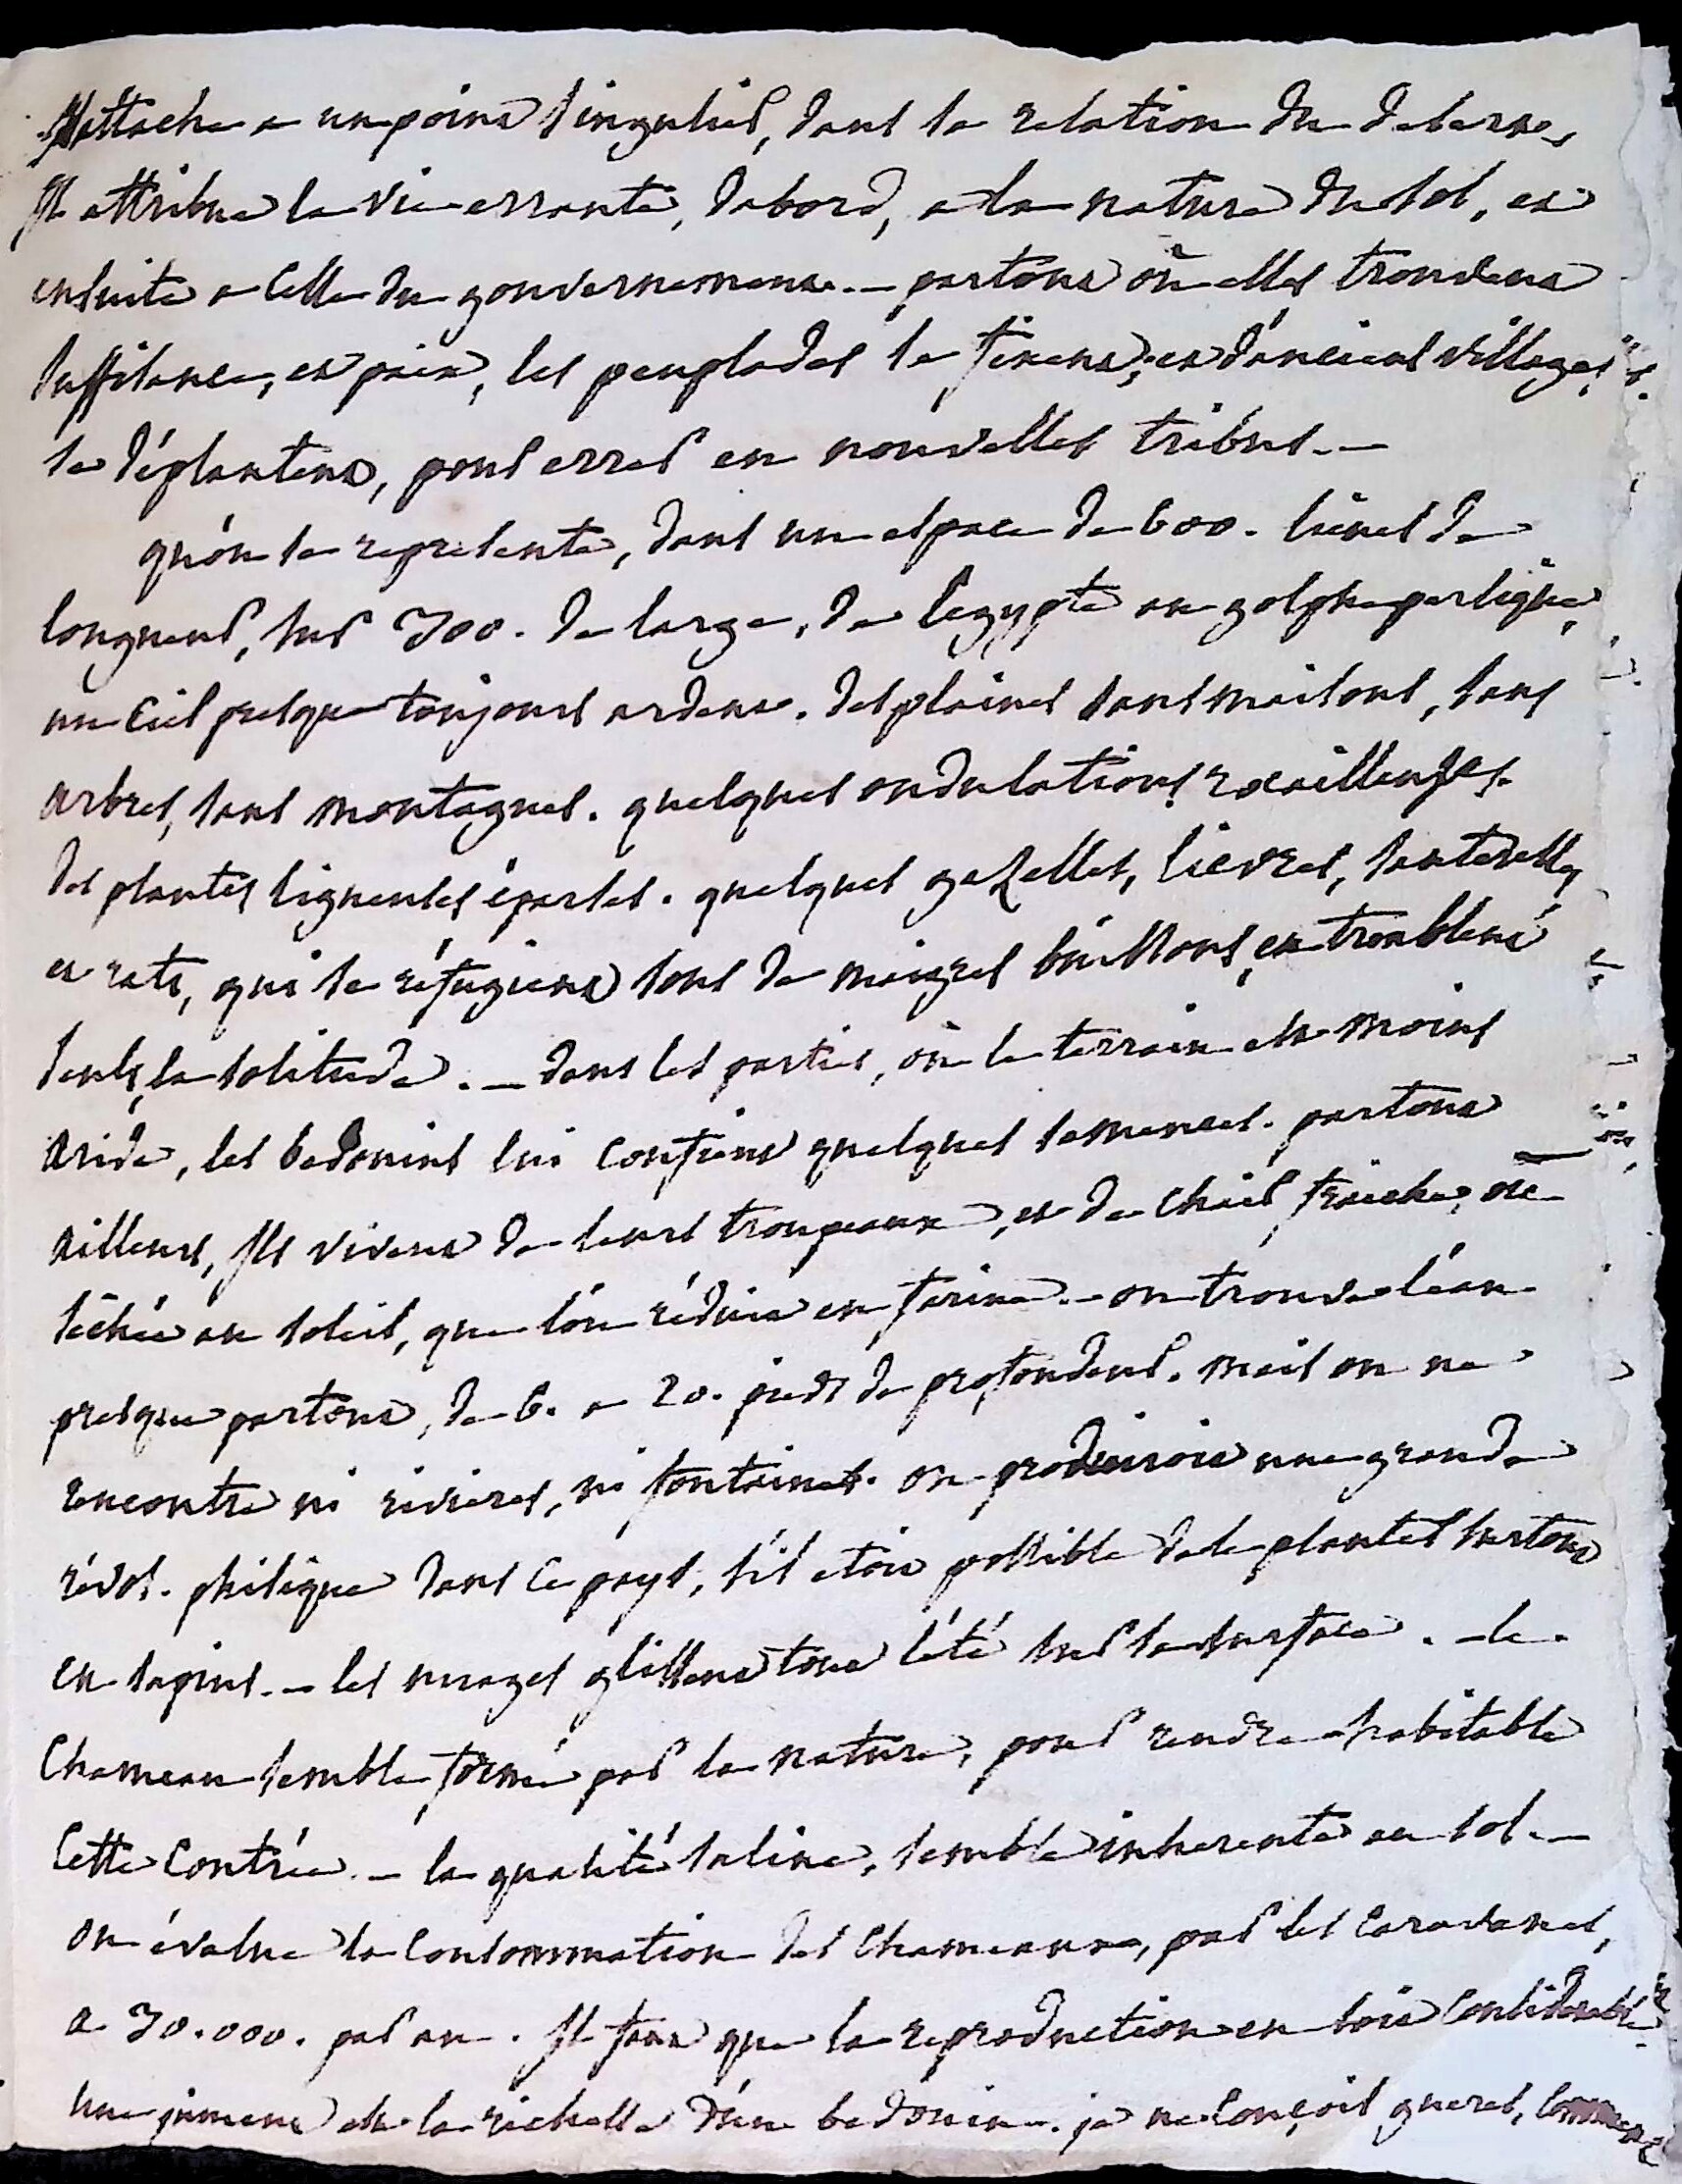 Mattache a un point singulier, dans la relation du desert.
Il attribue la vie errante, dabord, a la nature du sol, et
ensuite a celle du gouvernement. - partout où elles trouvent
suffisance, et paix, les peuplades se fixent; et d'anciens villages,
se déplantent, pour errer en nouvelles tribus. -
qu'on se represente, dans un espace de 600. lieues de
longueur, sur 300. de large, de l'egypte au golphe persique,
un ciel presque toujours ardent. des plaines sans maisons, sans
arbres, sans montagnes. quelques ondulations rocailleuses.
des plantes ligneuses éparses. quelques gazelles, lievres, sauterelles
et rats, qui se réfugient sous de maigres buissons, et troublent
seuls, la solitude. - dans les parties, où le terrain est moins
aride, les bedouins lui confient quelques semences. partout
ailleurs, Ils vivent de leurs troupeaux, et de chair fraiche, ou
séchée au soleil, que l'on réduit en farine. - on trouve l'eau
presque partout, de 6. a 20. pieds de profondeur. mais on ne
rencontre ni rivieres, ni fontaines. on produiroit une grande
révol. phisique dans ce pays, s'il etoit possible de le planter surtout
en sapins. - les nuages glissent tout l'été sur sa surface. - le
Chameau semble formé par la nature, pour rendre habitable
cette contrée. - la qualité saline, semble inherente au sol. -
on évalue la consommation des chameaux, par les caravanes,
a 30.000. par an. Il faut que la reproduction en soit considerable
une jument est la richesse d'un bedouin. je ne conçois gueres, comment